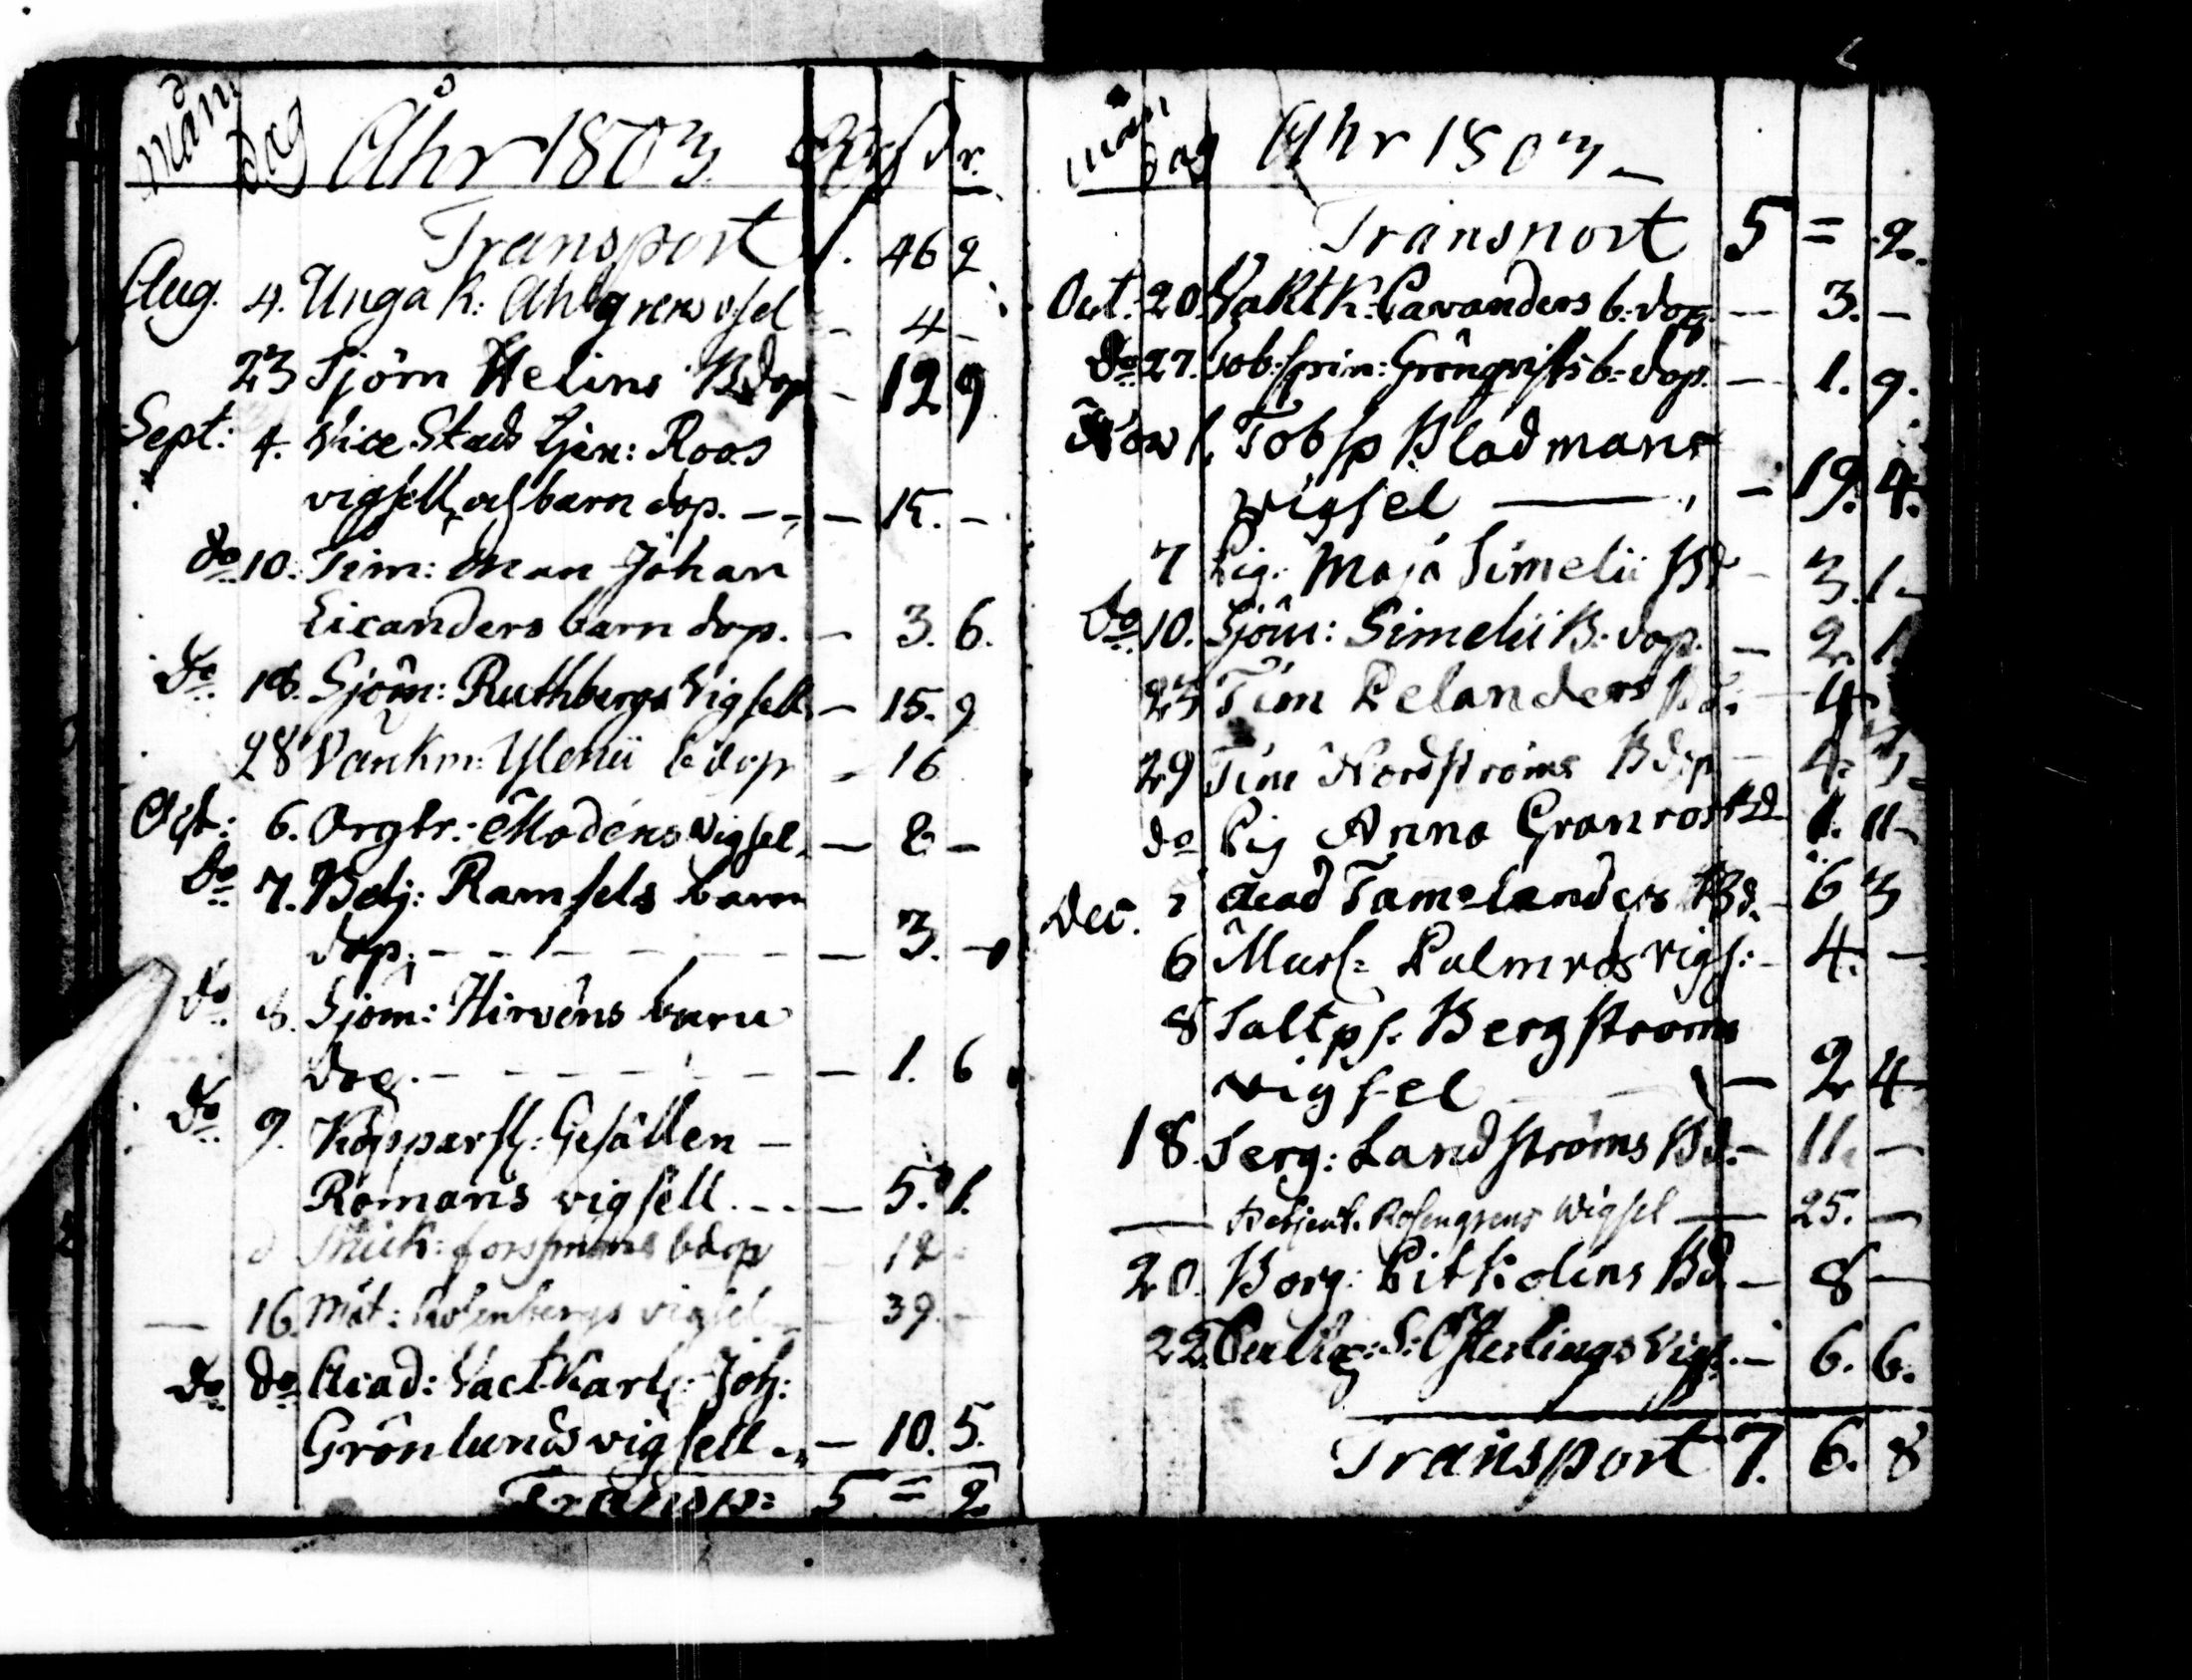 Mån dag Åhr 1803
Transport 1. 46 2
Aug. 4. Unga K: Ahlgrens vsel — 4 —
23 Sjöm Helins Bdop — 12 9
Sept: 4. Vice Stads tjen: Roos
vigsell och barn dop. — — — 15. —
do 10. Tim: Man Johan
Licanders barn dop. — 3. 6.
do 18. Sjöm: Ruthbergs Vigsell — 15. 9
28 Vankm: Ylenii b dop — 16
Oct: 6. Orgtr: Modéns vigsel — 8 —
do 7. Betj: Ramsels barn
dop. — — — — — — 3. —
do 8. Sjöm: Hirvéns barn
dop. — — — — — — 1. 6
do 9. Kopparsl: Gesällen —
Romans vigsell. — — 5. 1.
Forssmans bdop 12
— 16. Mat: Rosenbergs vigsel — 39. —
do do Acad: Vactkarl: Joh:
Grönlunds vigsell — 10. 5.
Transp: 5 = 2
Mån dag Åhr 1803 —
Transport 5 = 2.
Oct. 20. Vakt K: Pavanders b. dop. — 3. —
do 27. Tob: spin: Grönqvists b. dop. — 1. 9.
Nov 1. Tob sp Bladmans
vigsel — — 19. 4.
7 Pig. Maja Simelii Bd — 3. 1 —
do 10. Sjöm: Simelii B. dop. — 2. 1
23 Tim Pelanders Bd. — 4
29 Tim Nordströms Bdop — 4.
do Pig Anna Granros Bd 1. 11 —
Dec. 2 Acad Tamelanders Bd. — 6 3
6 Murs: Palmros vigs: — 4. —
8 Saltps. Bergstroms
vigsel — 2 4
18. Serg: Landströms Bd. — 11. —
— Betjent. Rosengrens Wigsel — 25. —
20. Borg: Pitkolins Bd. — 8 —
22. S: Österlings Vigs. — 6. 6.
Transport 7. 6. 8